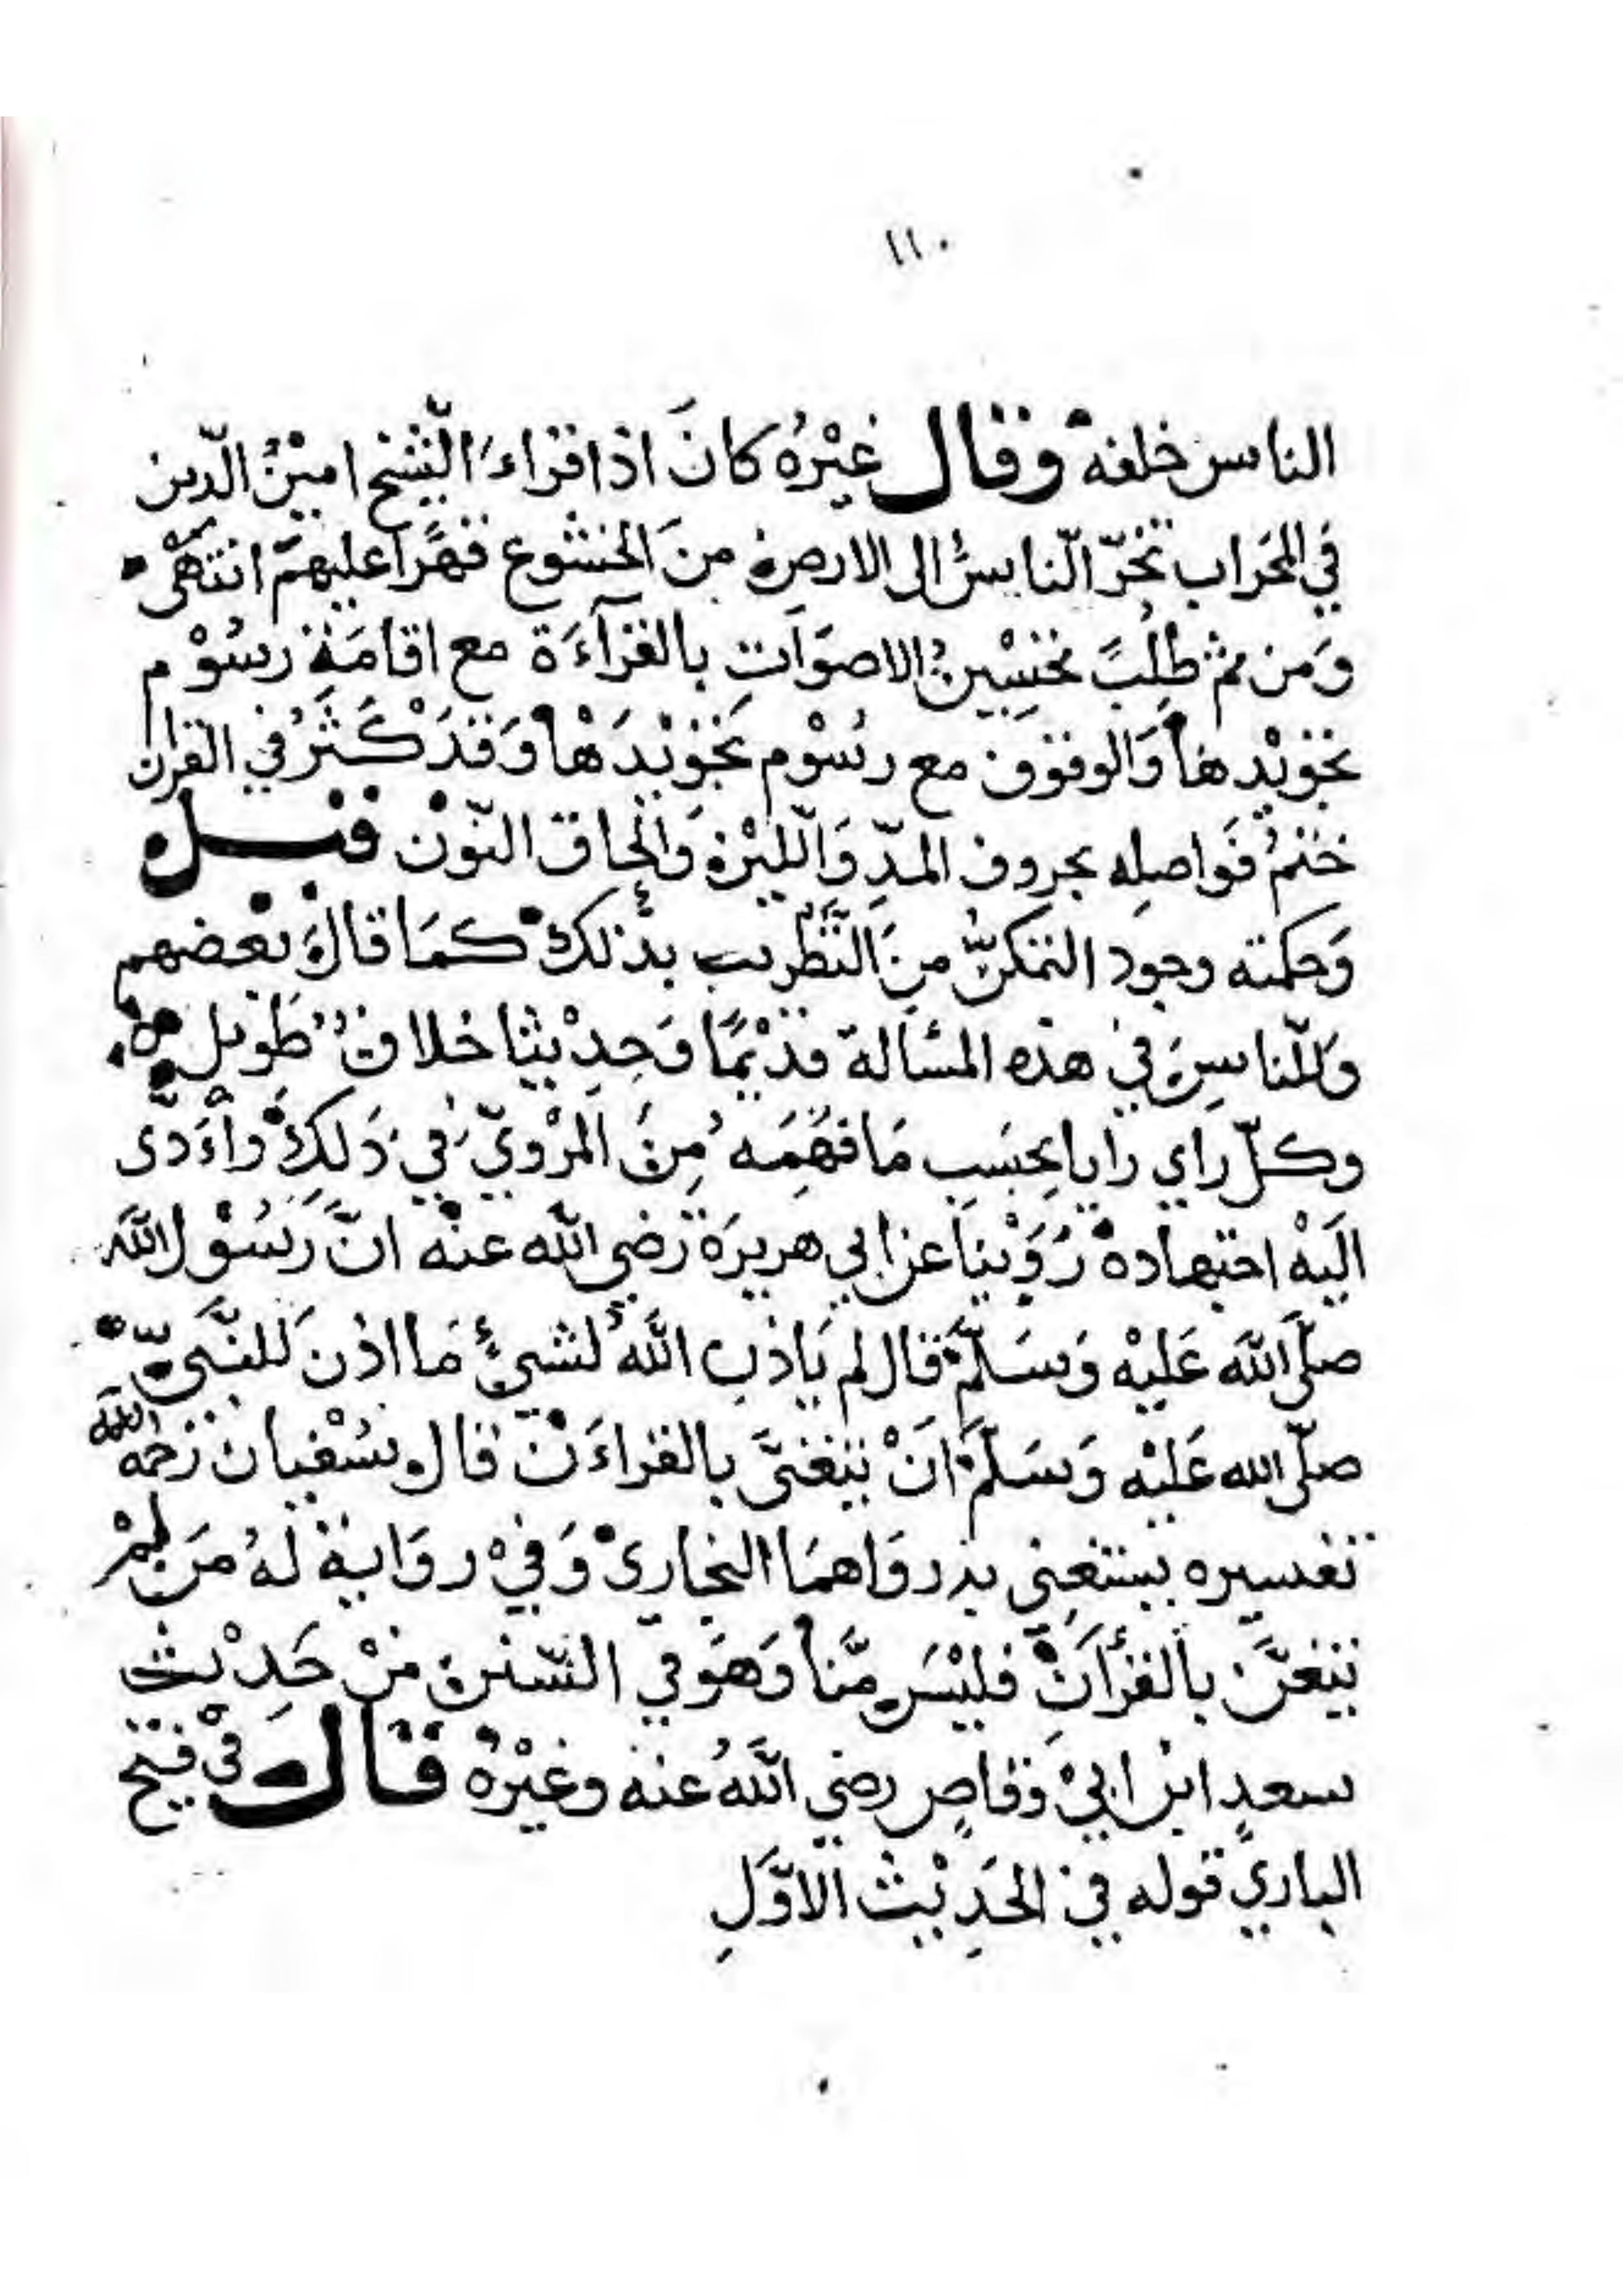 ١١٠
الناس خلفه وقال غيْرُه كانَ اذا قراءَ الشّيخ امينُ الدّين
في المحَراب تخرّ النّاسُ الى الارض منَ الخشوع قهرًا عليهمْ انتهى
وَمن ثم طلِبَ تحْسِينُ الاصوَات بالقرآءَة مع اقامَة رسُوْم
تجْويْدهَا وَالوقوف مع رسُوْم تجْويْدهَا وَقدْ كَثُرَ في القران
ختمُ فَواصله بحروف المدّ وَاللّيْن وَالحْاق النّوْن قيل
وَحكمته وجود التمكنّ منَ التّطريب بذلكَ كمَا قالَ بعْضهم
وَللنّاسِ في هذه المسْالة قديْمًا وَحِديْثا خلافٌ طَويل
وكلّ راي رايا بحسَبِ مَا فهَمَه مِنَ المرْويّ في ذَلكَ وادَّى
اليَهْ اجتهاده رُوّيْنَا عن ابي هريرَة رَضي الله عنْه انَّ رَسُوْل الله
صلَّى اللهَ عَليْه وَسَلَّمَ قال لم يَاذن اللهُ لشيْءٍ مَا اذن للنَبّيّ
صلّى الله عَليْه وَسَلّمَ انْ يتَغَنّى بالقراءَن قال سُفيان رَحمهُ الله
تفسيره يستغنى به رواهمَا البخاريْ وَفيْ روَاية لهُ مَن لمْ
يتغنَّ بالقرْآنِ فليْسَ منَّا وَهوَ في السّننِ منْ حَدِيْث
سعدٍ ابن ابيْ وَقاصٍ رضي اللهُ عنه وغيْرُه قَالَ في فتح
الباري قوله في الحَدِيْث الاوَّلِ